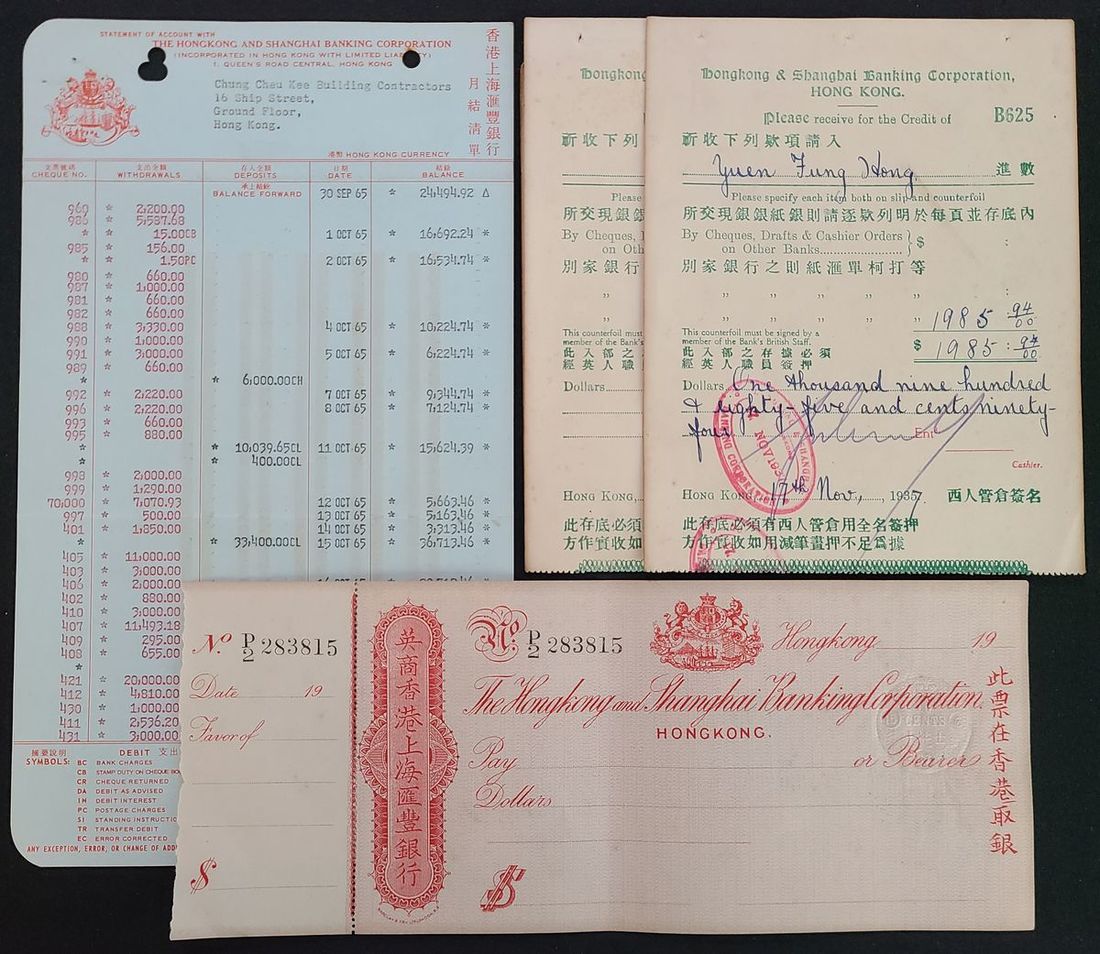 STATEMENT OF ACCOUNT WITH
THE HONGKONG AND SHANGHAI BANKING CORPORATION
(INCORPORATED IN HONG KONG WITH LIMITED LIABILITY)
1, QUEEN'S ROAD CENTRAL, HONG KONG
香港上海滙豐銀行
月結清單
Chung Cheu Kee Building Contractors
16 Ship Street,
Ground Floor,
Hong Kong.
港幣 HONG KONG CURRENCY
支票號碼 支出金額 存入金額 日期 結餘
CHEQUE NO. WITHDRAWALS DEPOSITS DATE BALANCE
承上結餘
BALANCE FORWARD 30 SEP 65 * 24,494.92 Δ
960 * 2,200.00
986 * 5,587.68
* * 15.00CB 1 OCT 65 * 16,692.24 *
985 * 156.00
* * 1.50PC 2 OCT 65 * 16,534.74 *
980 * 660.00
987 * 1,000.00
981 * 660.00
982 * 660.00
988 * 3,330.00 4 OCT 65 * 10,224.74 *
990 * 1,000.00
991 * 3,000.00 5 OCT 65 * 6,224.74 *
989 * 660.00
* * 6,000.00CH
992 * 2,220.00 7 OCT 65 * 9,344.74 *
996 * 2,220.00 8 OCT 65 * 7,124.74 *
993 * 660.00
995 * 880.00
* * 10,039.65CL 11 OCT 65 * 15,624.39 *
* * 400.00CL
998 * 2,000.00
999 * 1,290.00
70,000 * 7,070.93 12 OCT 65 * 5,663.46 *
997 * 500.00 13 OCT 65 * 5,163.46 *
401 * 1,850.00 14 OCT 65 * 3,313.46 *
* * 33,400.00CL 15 OCT 65 * 36,713.46 *
405 * 11,000.00
403 * 3,000.00
406 * 2,000.00
402 * 880.00
410 * 3,000.00
407 * 11,493.18
409 * 295.00
408 * 655.00
*
421 * 20,000.00
412 * 4,810.00
430 * 1,000.00
411 * 2,536.20
431 * 3,000.00
摘要說明 DEBIT 支出
SYMBOLS: BC BANK CHARGES
CB STAMP DUTY ON CHEQUE BO
CR CHEQUE RETURNED
DA DEBIT AS ADVISED
IN DEBIT INTEREST
PC POSTAGE CHARGES
SI STANDING INSTRUCTION
TR TRANSFER DEBIT
EC ERROR CORRECTED
ANY EXCEPTION, ERROR, OR CHANGE OF ADD
Hongkong
祈收下列
Please
所交現銀銀
By Cheques, D
on Oth
別家銀行
This counterfoil must
member of the Bank's
此入部之
經英人職
Dollars
HONG KONG,
此存底必須
方作實收如
Hongkong & Shanghai Banking Corporation,
HONG KONG.
Please receive for the Credit of B625
祈收下列欵項請入
Yuen Fung Hong. 進數
Please specify each item both on slip and counterfoil
所交現銀銀紙銀則請逐欵列明於每頁並存底內
By Cheques, Drafts & Cashier Orders
on Other Banks } $ :
別家銀行之則紙滙單柯打等
" " " " " :
" " " " " 1985 94/00
This counterfoil must be signed by a
member of the Bank's British Staff. $ 1985 : 94/00
此入部之存據必須
經英人職員簽押
Dollars One thousand nine hundred
& eighty-five and cents ninety-
four
Ent
Cashier.
NOV 193
BANKING CORPORATION
HONG KONG, 17th Nov., 1937 西人管倉簽名
此存底必須有西人管倉用全名簽押
方作實收如用減筆畫押不足爲據
No. P/2 283815
Date 19
Favor of
$
英商香港上海匯豐銀行
No. P/2 283815 Hongkong 19
The Hongkong and Shanghai Banking Corporation.
HONGKONG.
Pay or Bearer
Dollars
$
此票在香港取銀